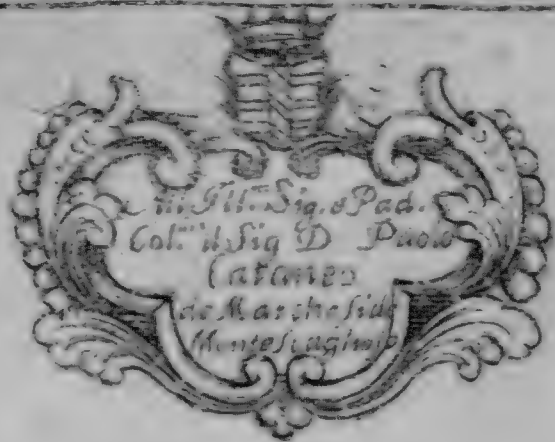 Ill.mo Sig. e Pad.
Col.mo il Sig D Paolo
Cataneo
de Marchesi di
Montescaglioso